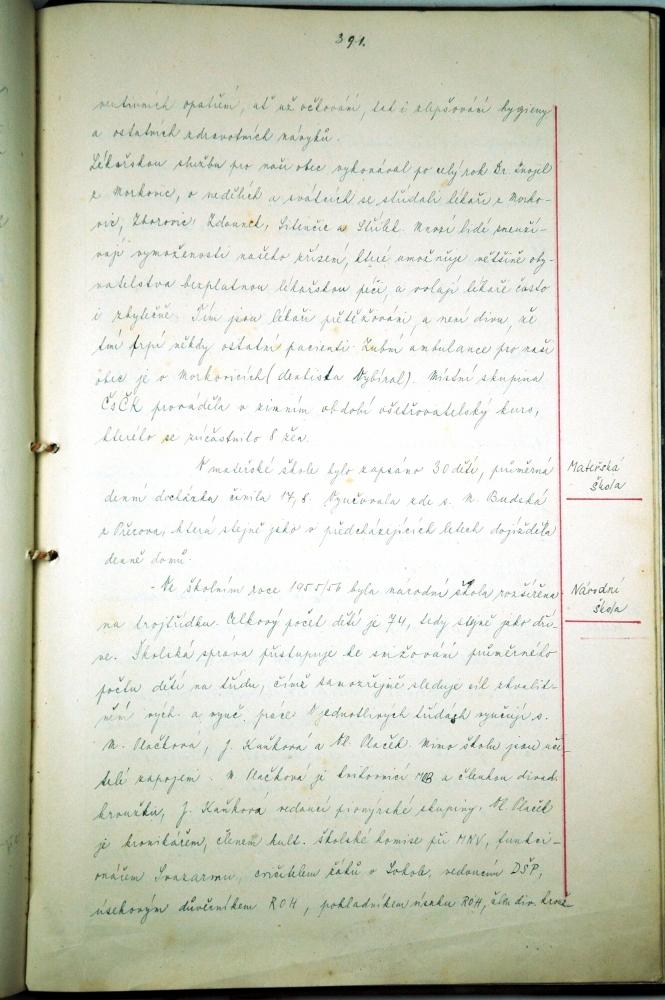 391.
ventivních opatření, ať už očkování, tak i zlepšování hygieny
a ostatních zdravotních návyků.
Lékařskou službu pro naši obec vykonával po celý rok Dr.
z Morkovic, o nedělích a svátcích se střídali lékaři z Morko-
vic, Zborovic, Zdounek, Litenčic a Střílek. Mnozí lidé zneuží-
vají vymožeností našeho zřízení, které umožňuje většině oby-
vatelstva bezplatnou lékařskou péči, a volají lékaře často
i zbytečně. Tím jsou lékaři přetěžováni, a není divu, že
tím trpí někdy ostatní pacienti. Zubní ambulance pro naši
obec je v Morkovicích (dentista Vybíral). Místní skupina
ČsČK prováděla v zimním období ošetřovatelský kurs,
kterého se zúčastnilo 8 žen.
V mateřské škole bylo zapsáno 30 dětí, průměrná
Mateřská
škola
denní docházka činila 17,8. Vyučovala zde s. M. Budská
z Přerova, která stejně jako v předcházejících letech dojížděla
denně domů.
- Ve školním roce 1955/56 byla národní škola rozšířena
Národní
škola
na trojtřídku. Celkový počet dětí je 74, tedy stejně jako dří-
ve. Školská správa přistupuje ke snižování průměrného
počtu dětí na třídu, čímž samozřejmě sleduje cíl zkvalit-
nění vých. a vyuč. práce. V jednotlivých třídách vyučují s.
M. Vlačková, J. Kaňková a Vl. Vlaček. Mimo školu jsou uči-
telé zapojeni. M. Vlačková je knihovnicí a členkou divad.
kroužku, J. Kaňková vedoucí pionýrské skupiny, Vl. Vlaček
je kronikářem, členem kult. školské komise při MNV, funkci-
onářem Svazarmu, cvičitelem žáků v Sokole, vedoucím DŠP,
úsekovým důvěrníkem ROH, pokladníkem úseku ROH, člen div. krouž-